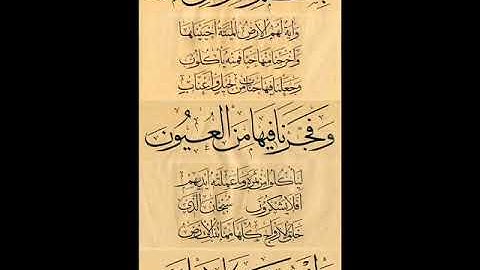 وَآيَةٌ لَهُمُ الْأَرْضُ الْمَيْتَةُ أَحْيَيْنَاهَا
وَأَخْرَجْنَا مِنْهَا حَبًّا فَمِنْهُ يَأْكُلُونَ
وَجَعَلْنَا فِيهَا جَنَّاتٍ مِنْ نَخِيلٍ وَأَعْنَابٍ
وَفَجَّرْنَا فِيهَا مِنَ الْعُيُونِ
لِيَأْكُلُوا مِنْ ثَمَرِهِ وَمَا عَمِلَتْهُ أَيْدِيهِمْ
أَفَلَا يَشْكُرُونَ سُبْحَانَ الَّذِي
خَلَقَ الْأَزْوَاجَ كُلَّهَا مِمَّا تُنْبِتُ الْأَرْضُ